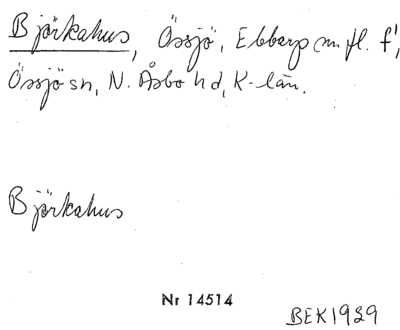 Björkahus, Össjö, Ebbarp m fl. f',
Össjö sn, N. Åsbo hd, K-län.
Björkahus
Nr 14514
BEK 1939